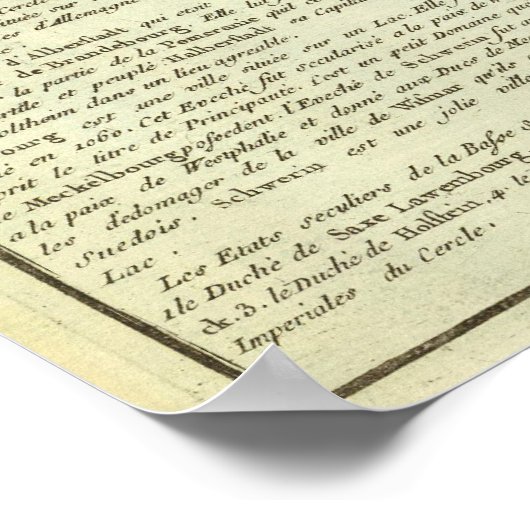 Cercle
d'Allemagne
d'Alberstadt qui etoit
de Brandebourg. Elle lui fut
la partie de la Pomeranie qui
fertile et peuplé Halberstadt sa Capitale
dans un lieu agreable.
est une ville située sur un Lac. Elle
é en 1060. Cet Eveché fut secularisé a la paix de
prit le titre de Principauté. C'est un petit Domaine que
de Meckelbourg possedent. l'Eveché de Schwerin fut
a la paix de Westphalie et donné aux Ducs de
les dedomager de la ville de Vismar qu'ils
Suedois. Schwerin est une jolie ville
Lac.
Les Etats seculiers de la Basse
1 le Duché de Saxe Lawenbourg
ck. 3. le Duché de Holstein. 4. le
Imperiales du Cercle.